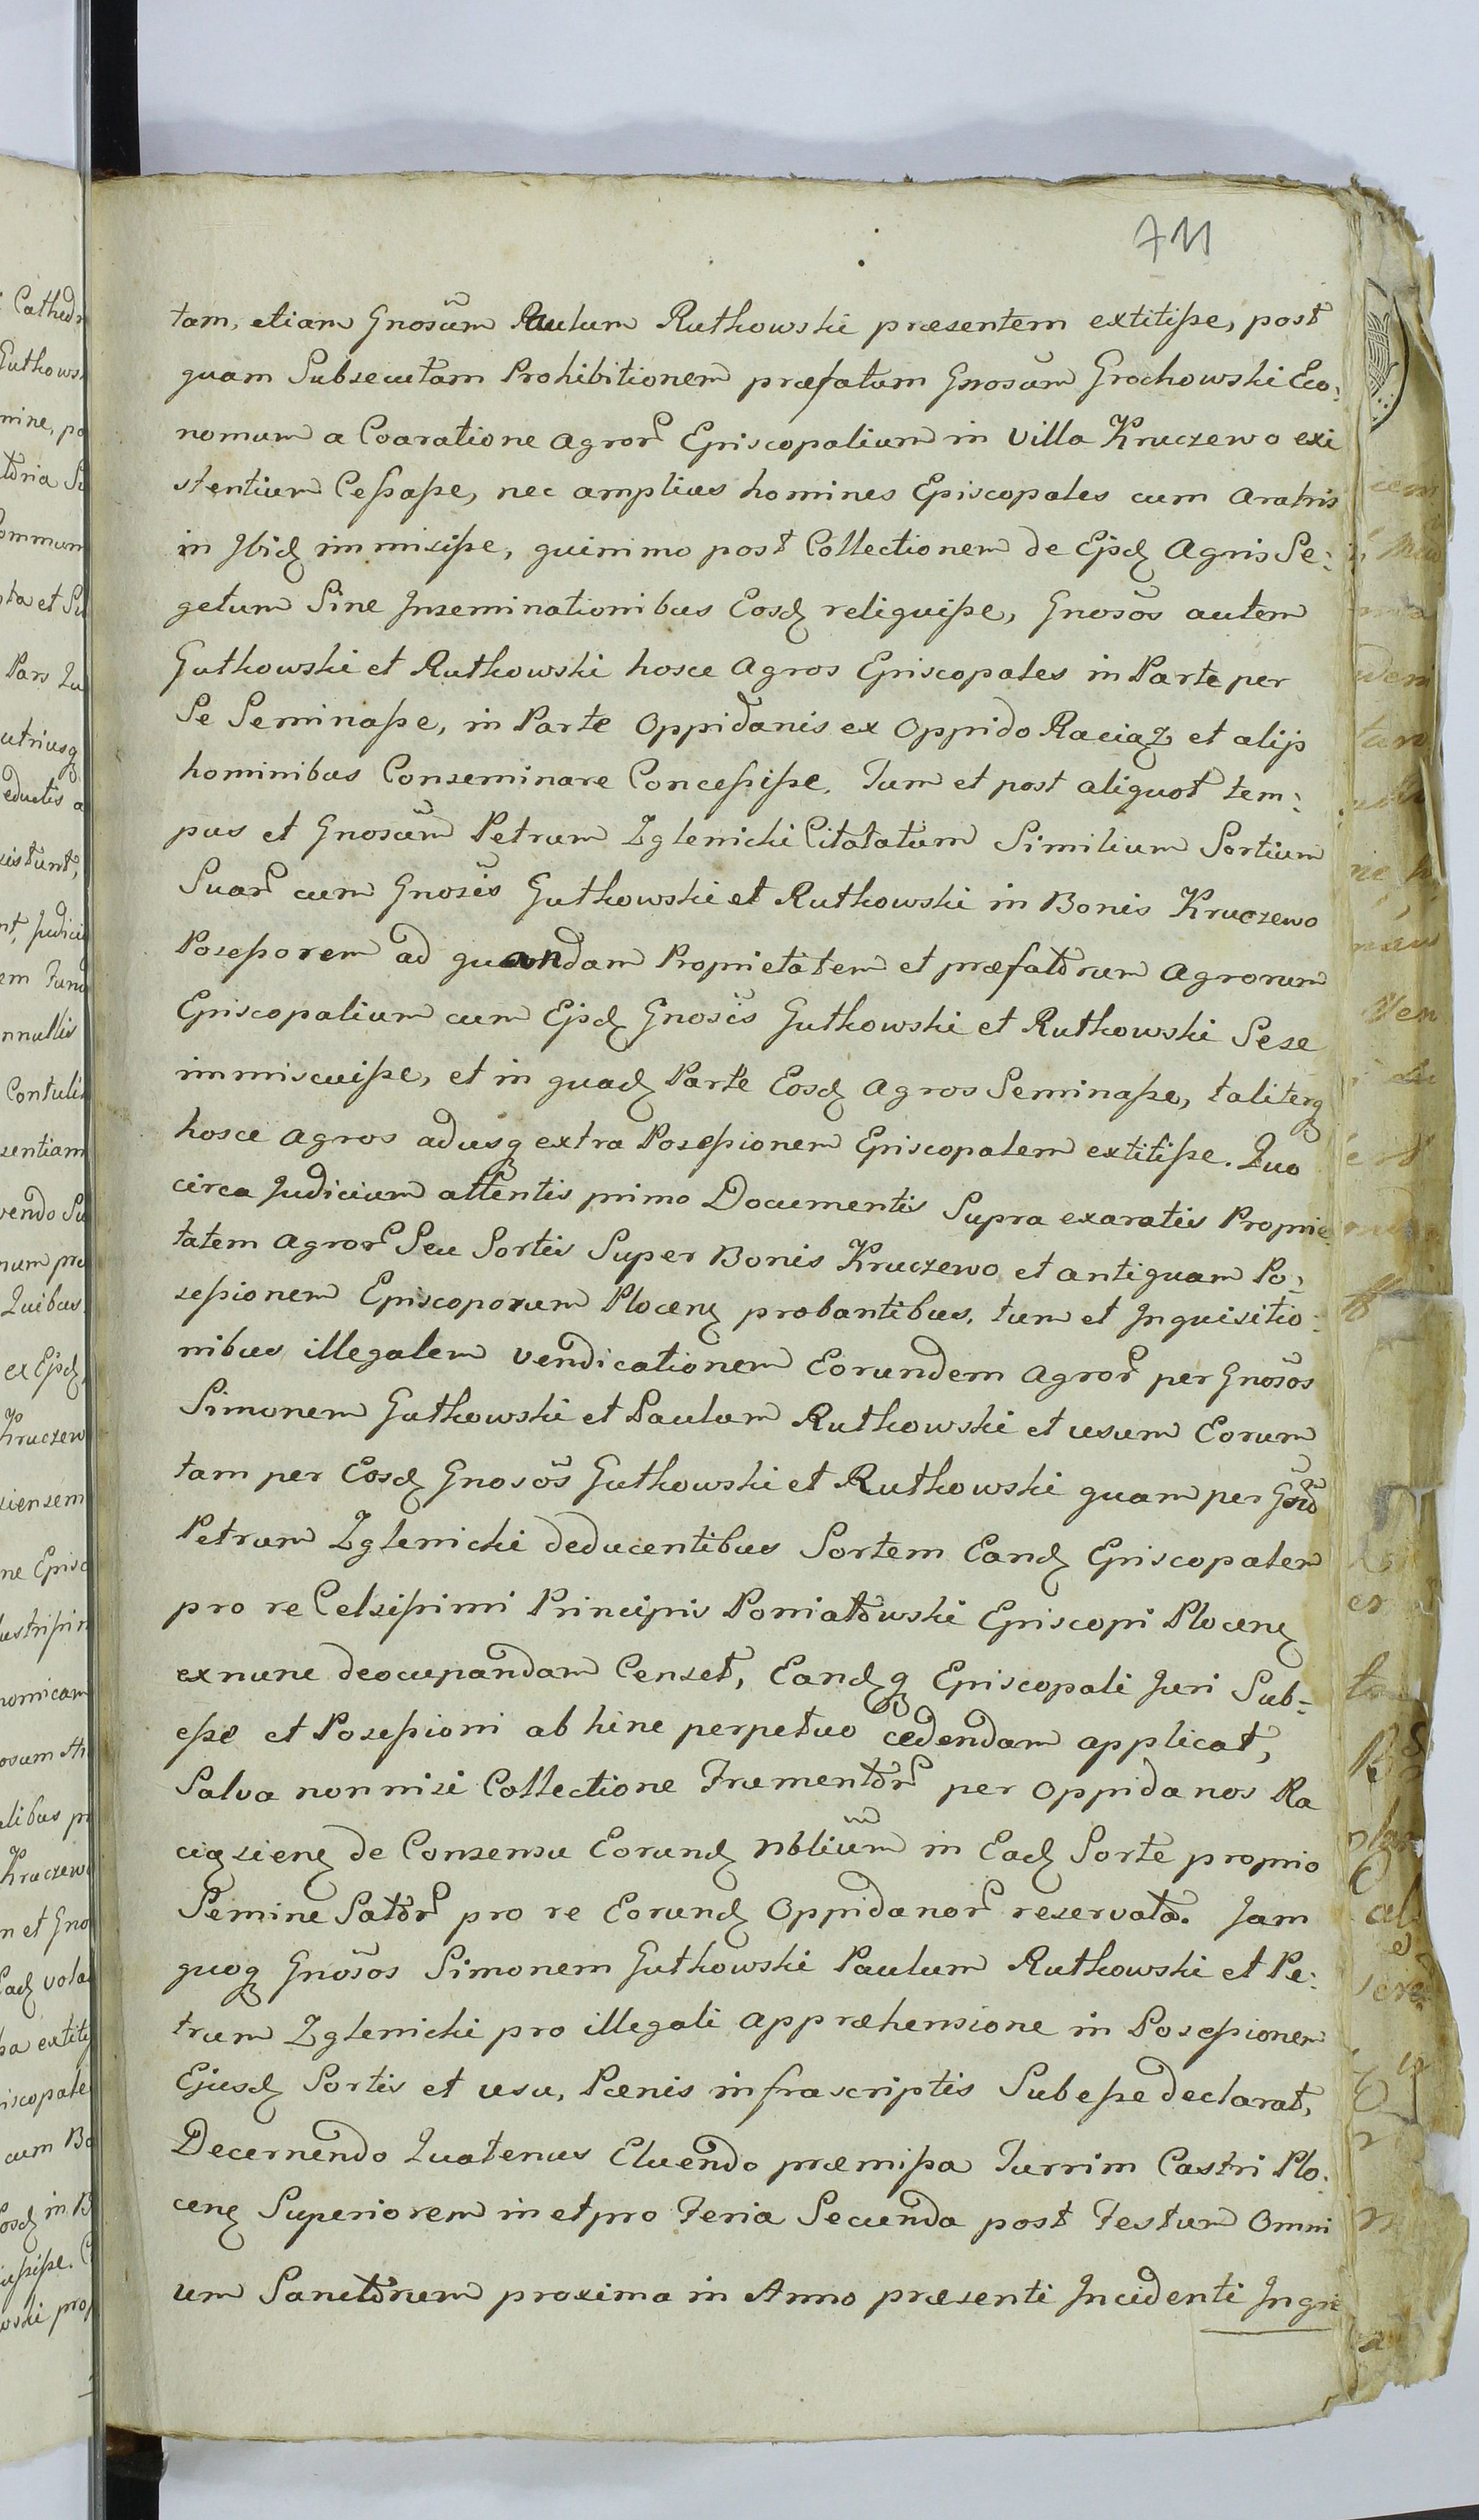 711
tam, etiam Gnosum Paulum Rutkowski præsentem extitiſse, post
quam Subsecutam Prohibitionem præfatum Gnosum Grochowski Eco:
nomum a Coaratione Agror Episcopalium in Villa Kruczewo exi
stentium Ceſsaſse, nec amplius homines Episcopales cum Aratris
in Ibid immisiſse, quinimo post Collectionem de Ejsd Agris Se:
getum Sine Inseminationibus Eosd reliquiſse, Gnosos autem
Gutkowski et Rutkowski hosce Agros Episcopales in Parte per
Se Seminaſse, in Parte Oppidanis ex Oppido Raciąż et alijs
hominibus Conseminare Conceſsiſse. Tum et post aliquot tem:
pus et Gnosum Petrum Zglenicki Citatatum Similium Sortium
Suar cum Gnosis Gutkowski et Rutkowski in Bonis Kruczewo
Poseſsorem ad quandam Proprietatem et præfatorum Agrorum
Episcopalium cum Ejsd Gnosis Gutkowski et Rutkowski Sese
immiscuiſse, et in quad Parte Eosd Agros Seminaſse, taliterq
hosce Agros adusq extra Poseſsionem Episcopalem extitiſse. Quo
circa Judicium attentis primo Documentis Supra exaratis Proprie
tatem Agror Seu Sortis Super Bonis Kruczewo et antiquam Po:
seſsionem Episcoporum Plocen probantibus, tum et Inquisitio:
nibus illegalem vendicationem Eorundem Agror per Gnosos
Simonem Gutkowski et Paulum Rutkowski et usum Eorum
tam per Eosd Gnosos Gutkowski et Rutkowski quam per Gnsum
Petrum Zglenicki deducentibus Sortem Eand Episcopalem
pro re Celsiſsimi Principis Poniatowski Episcopi Plocen
exnunc deocupandam Censet, Eandq Episcopali Juri Sub-
eſse et Poseſsioni ab hinc perpetuo cedendam applicat,
Salva nonnisi Collectione Frumentor per Oppidanos Ra
ciązien de Consensu Eorund Nblium in Ead Sorte proprio
Semine Sator pro re Eorund Oppidanor reservata. Jam
quoq Gnosos Simonem Gutkowski Paulum Rutkowski et Pe:
trum Zglenicki pro illegali appræhensione in Poseſsionem
Ejusd Sortis et usu, Pœnis infrascriptis Subeſse declarat,
Decernendo Quatenus Eluendo præmiſsa Turrim Castri Plo:
cen Superiorem in et pro Feria Secunda post Festum Omni
um Sanctorum proxima in Anno præsenti Incidenti Ingre